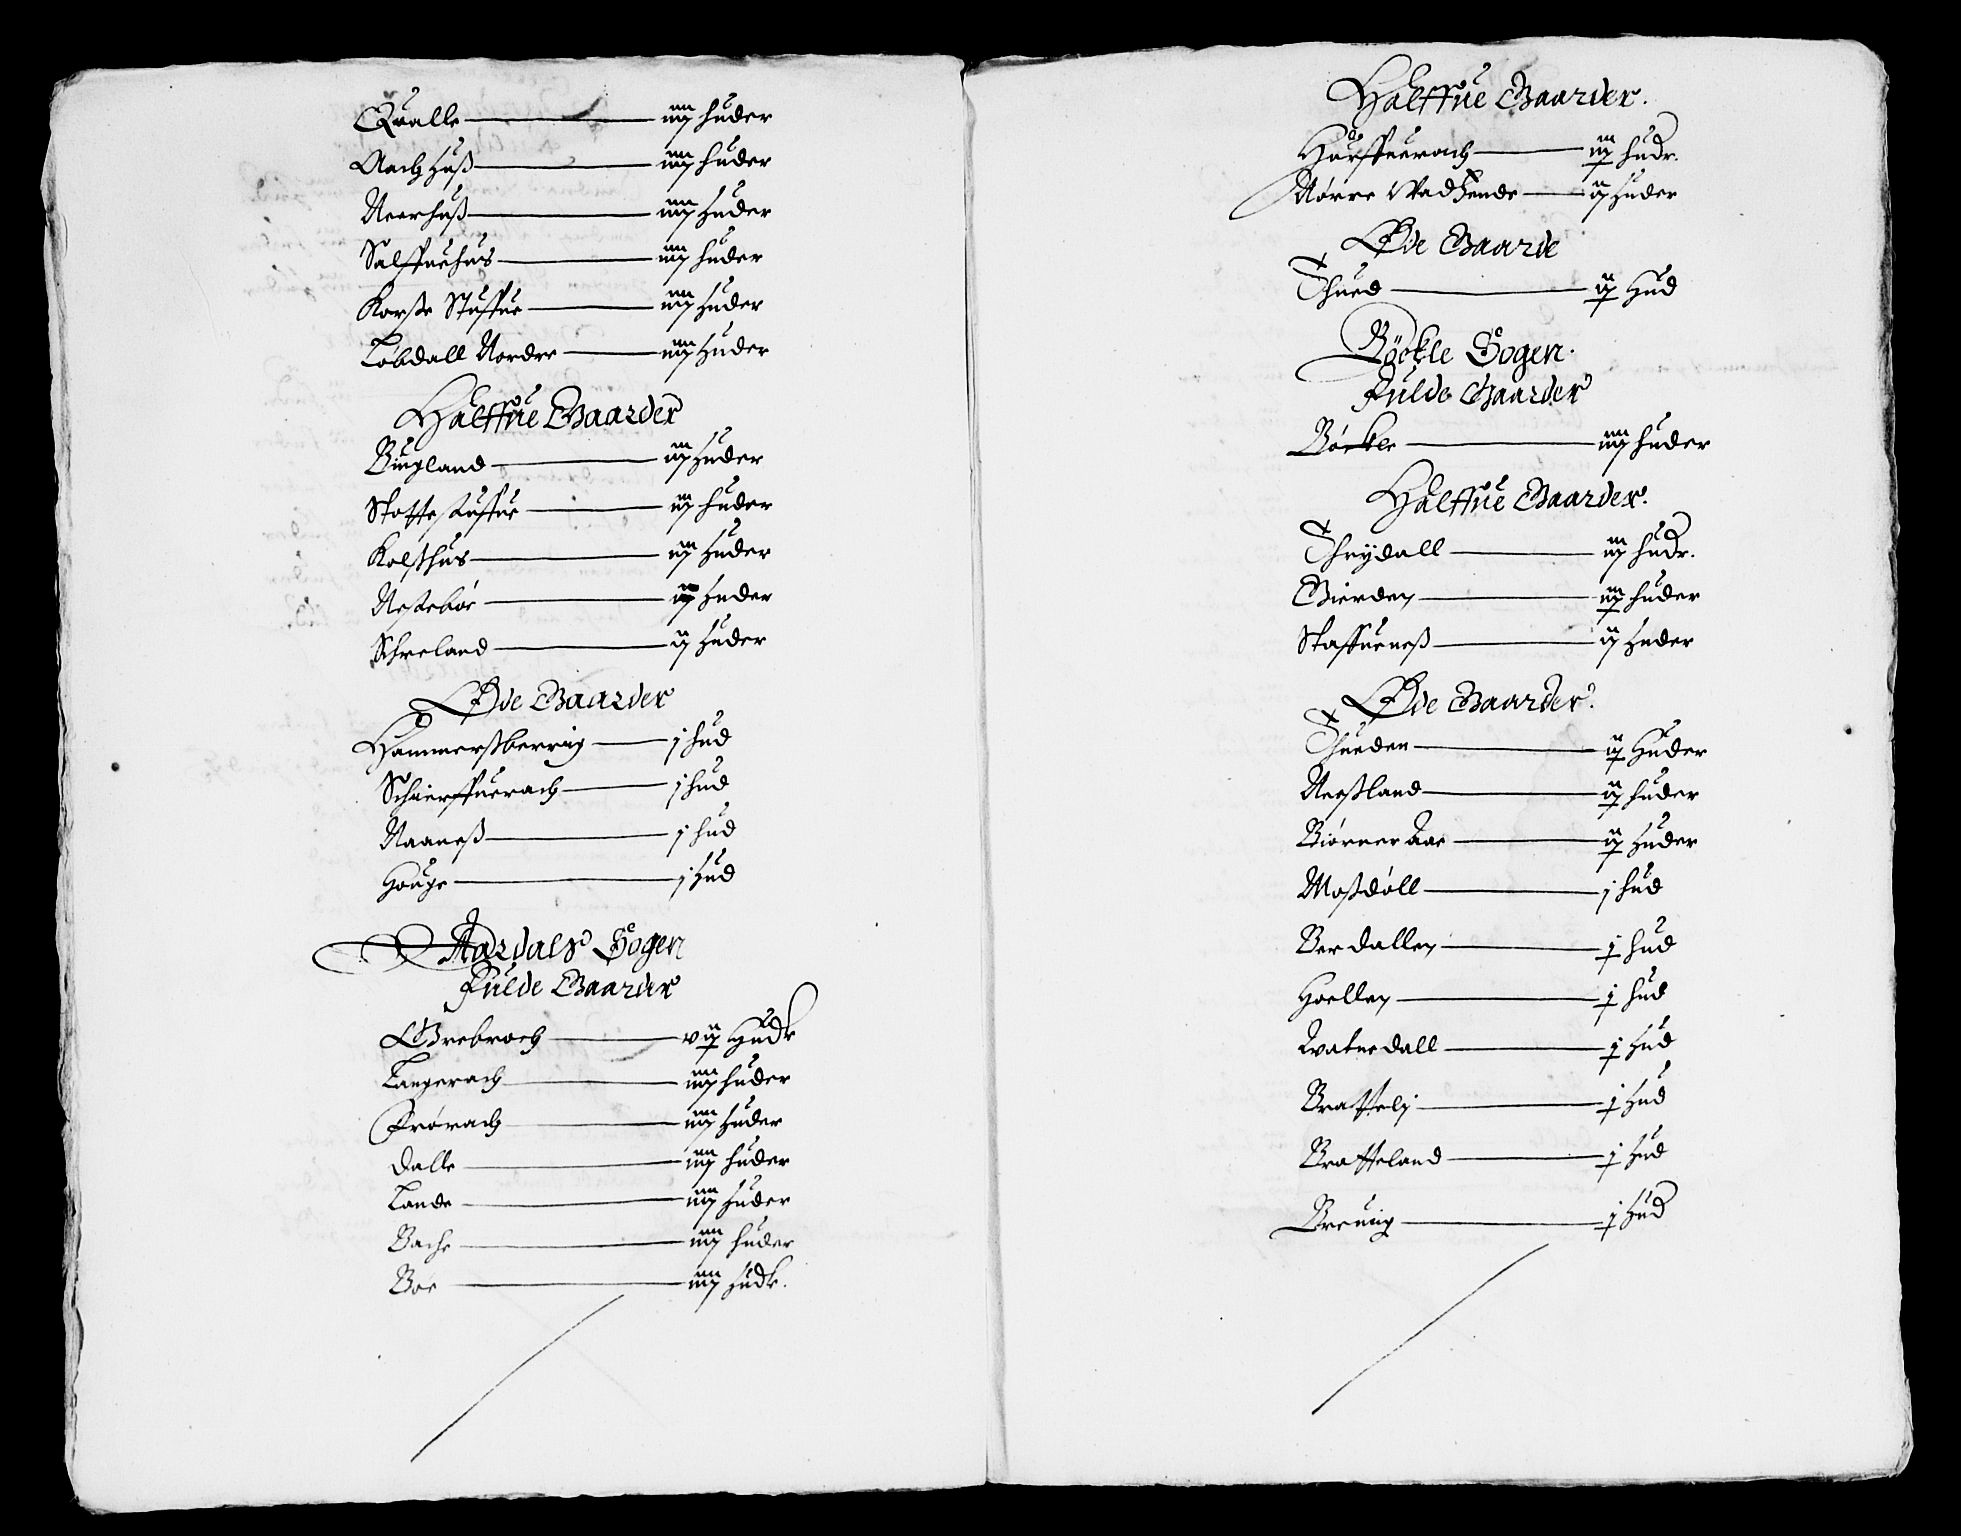 Qualle — iiij huder
Aachhuß — iiij huder
Neerhuß — iiij huder
Salffuehus — iiij huder
Korße Stuffue — iiij huder
Løbdall Nordre — iiij huder
Halffue Gaarder
Biugland — iij huder
Skottestuffue — iij huder
Kolßhus — iij huder
Nestebøe — ij huder
Schreland — ij huder
Øde Gaarder
Hammerßberrig — j hud
Schierffuerach — j hud
Naaneß — j hud
Houge — j hud
Aardals Sogen
Fulde Gaarder
Grebroch — vij hudr
Langerach — iiij huder
Frørach — iiij huder
Dalle — iiij huder
Lande — iiij huder
Bache — iiij huder
Boe — iiij hudr.
Halffue Gaarder.
Harffuerach — iij hudr.
Nørre Wadhende — ij huder
Øde Gaarde
Thued — ij hud
Böckle Sogen.
Fulde Gaarder
Böckle — iiij huder
Halffue Gaarder.
Thrydall — iij hudr.
Gierden — iij huder
Staffueneß — ij huder
Øde Gaarder.
Thueden — ij huder
Neeßland — ij huder
Biørner Aae — ij huder
Moßdøll — j hud
Berdallen — j hud
Hoellen — j hud
Watnedall — j hud
Brattelj — j hud
Bratteland — j hud
Breuiig — j hud